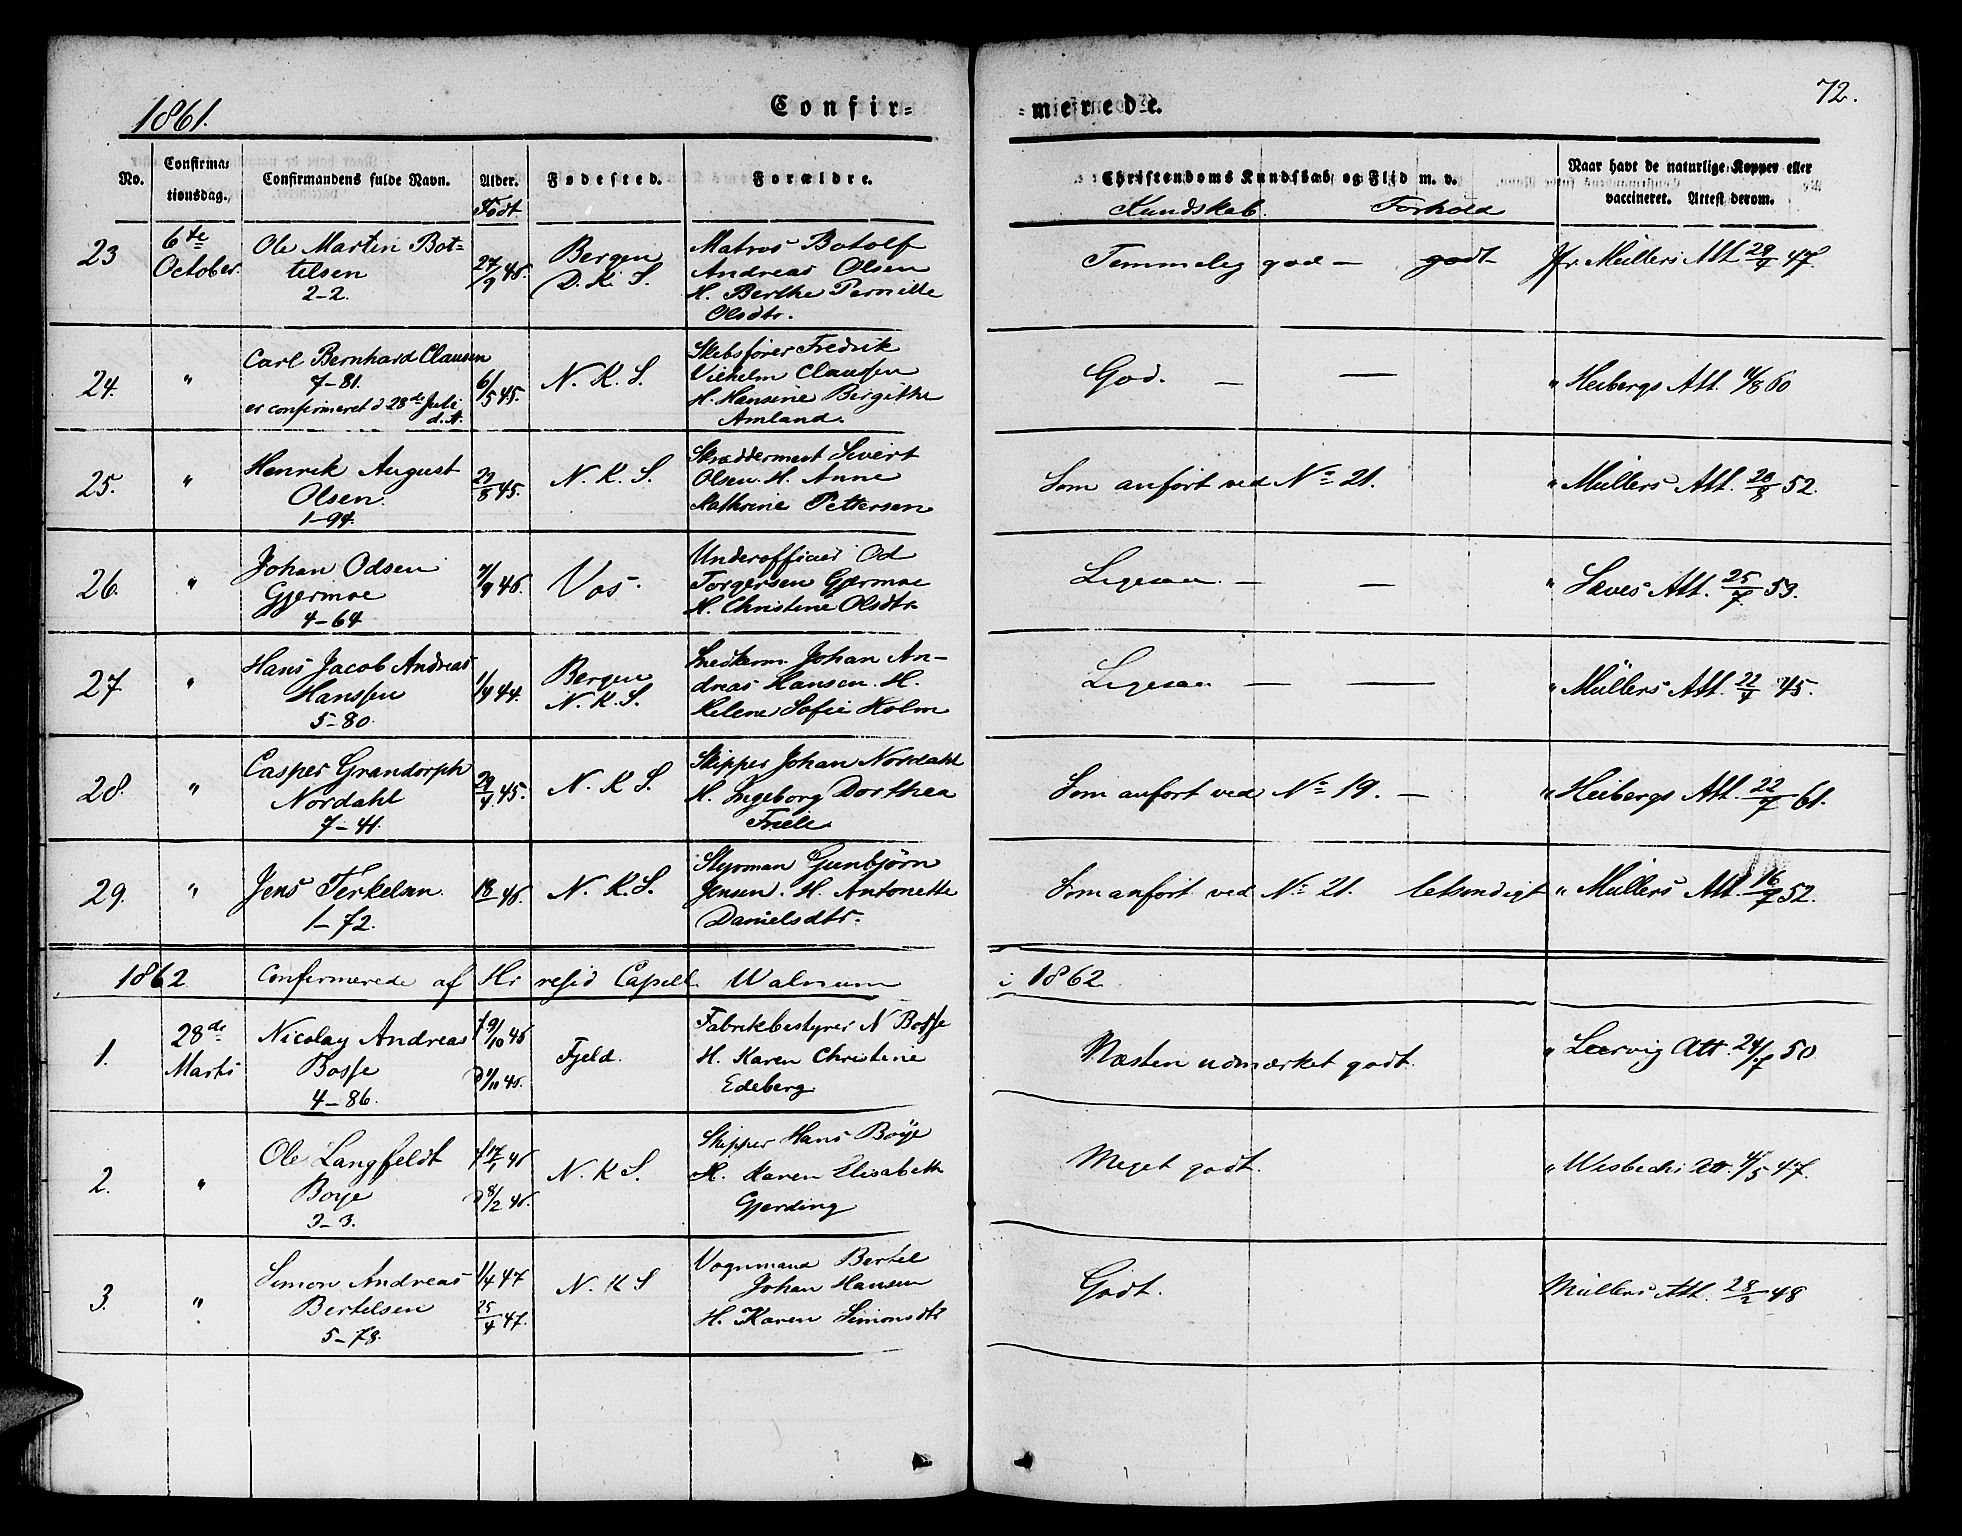 1861.
Confir-
-merede.
72.
No.
Confirma-
tionsdag.
Confirmandens fulde Navn.
Alder.
Født
Fødested.
Forældre.
Christendoms Kundskab og Flid m. v.
Kundskab. Forhold
Naar havt de naturlige Kopper eller
vaccineret. Attest derom.
23 6te Ole Martin Bot-
October. telsen
2-2.
27/9 45. Bergen
D. K. S.
Matros Botolf
Andreas Olsen
H. Berthe Pernille
Olsdtr.
Temmelig god — godt Jfr Müllers Att 29/7 47.
24. " Carl Bernhard Clausen
7-81.
er confirmeret d 28de Juli
d. A.
6/5 45. N. K. S.
Skibsfører Fredrik
Vilhelm Claussen
H. Hansine Birgithe
Amland.
God. — — " Heibergs Att. 11/8 60
25. " Henrik August
Olsen.
1-94.
23/8 45. N. K. S.
Skræddermest Sivert
Olsen. H. Anne
Kathrine Pettersen
Som anført ved No 21. " Müllers Att. 20/8 52.
26. " Johan Odsen
Gjermoe
4-64
7/9 46. Vos.
Underofficier Od
Torgersen Gjermoe
H. Christine Olsdtr.
Ligesaa — — " Sæves Att. 25/7 53.
27 " Hans Jacob Andreas
Hanssen
5-80.
1/9 44. Bergen
N. K. S.
Snedkerm. Johan An-
dreas Hansen. H.
Helene Sofie Holm
Ligesaa — — " Müllers Att. 22/4 45.
28. " Casper Grandorph
Nordahl
7-41.
29/4 45. N. K. S.
Skipper Johan Nordahl
H. Ingeborg Dorthea
Friele
Som anført ved No 19. — " Heibergs Att. 22/7 61.
29. " Jens Terkelsen
1-72.
N. K. S.
Styrman Gunbjørn
Jensen. H. Antonette
Danielsdtr.
Som anført ved No 21. letsindigt " Müllers Att. 16/7 52.
1862 Confirmerede af Hr resid Capell. Walnum i 1862.
1. 28de Nicolay Andreas
Marts Bosse
4-86.
f 9/10 46
Fjeld.
Fabrikbestyrer N Bosse
H. Karen Christine
Edeberg
Næsten udmærket godt. " Lærvig Att. 24/7 50
2. " Ole Langfeldt
Boye
3-3.
f 17/1 46
d 8/2 46.
N. K S.
Skipper Hans Boye
H. Karen Elisabeth
Gjerding
Meget godt. " Wisbechs Att. 4/5 47.
3. " Simon Andreas
Bertelsen
5-78.
1/4 47
25/4 47.
N. K S
Vognmand Bertel
Johan Hansen
H. Karen Simonsdtr
Godt. Müllers Att. 28/2 48